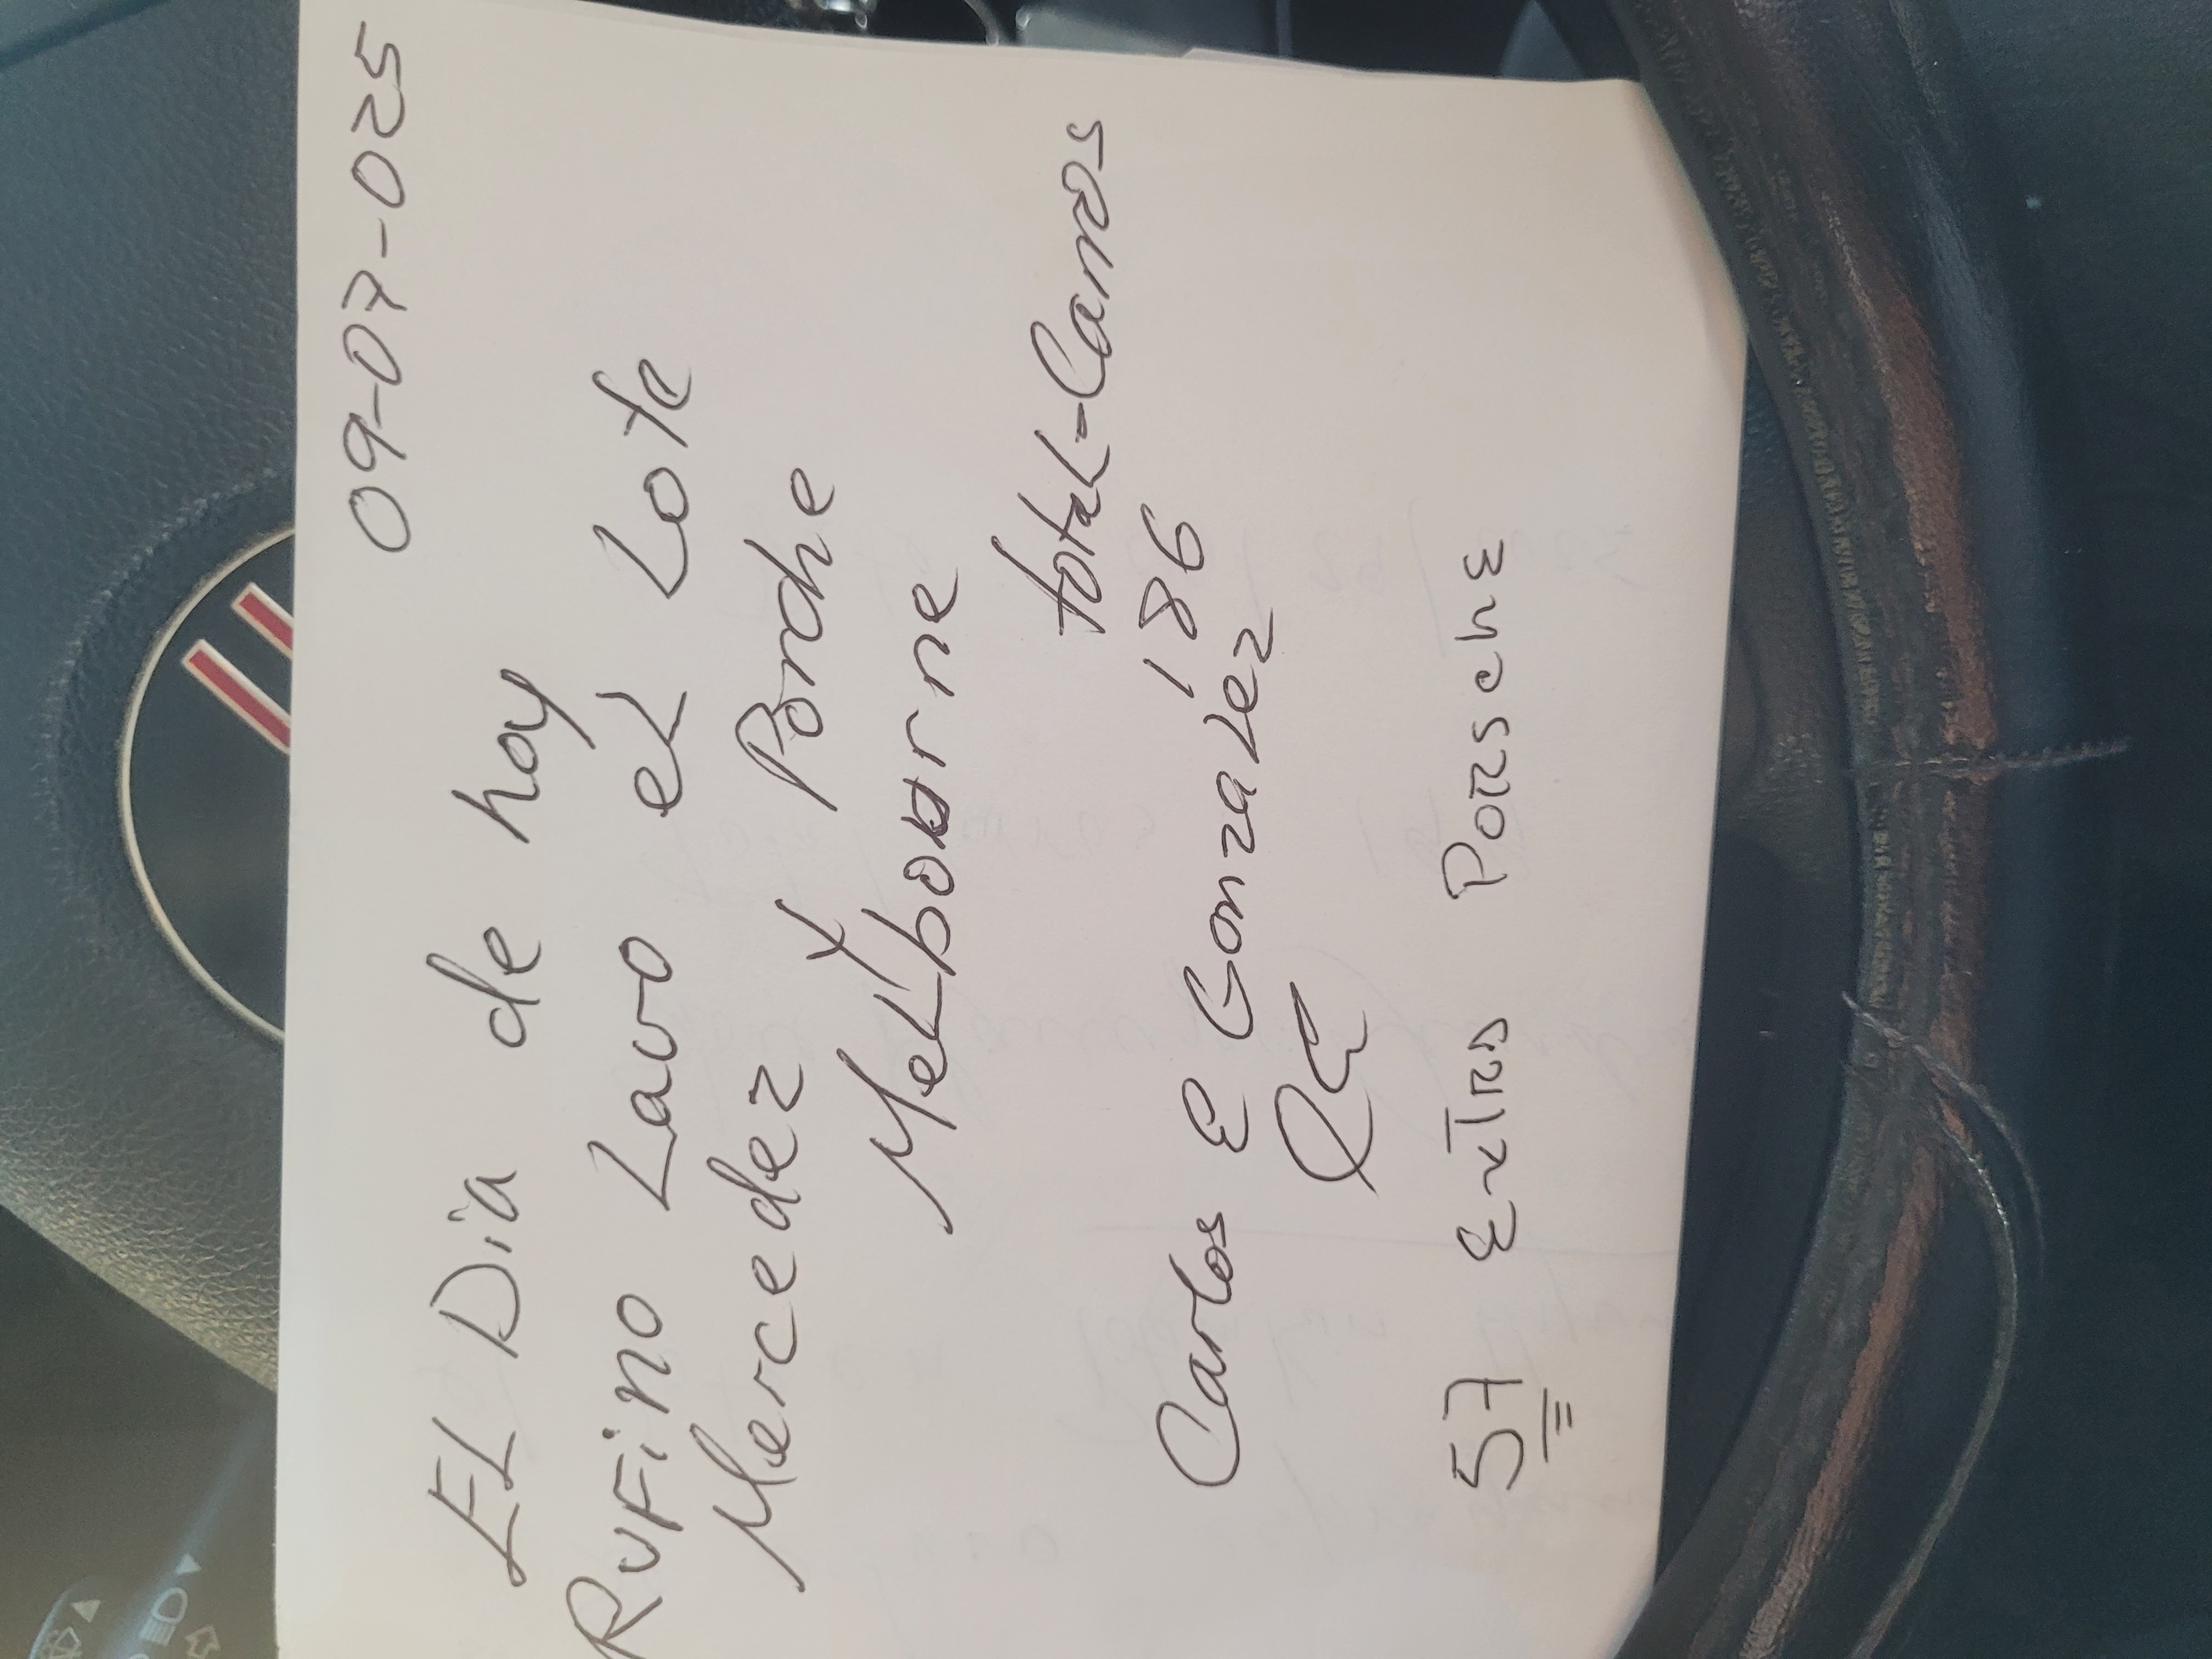 09-07-025
EL Dia de hoy
RUFino Lavo eL Lote
Mercedez y Porche
MeLbourne
total-Carros
186
Carlos E Gonzalez
57 Extras PORSChE